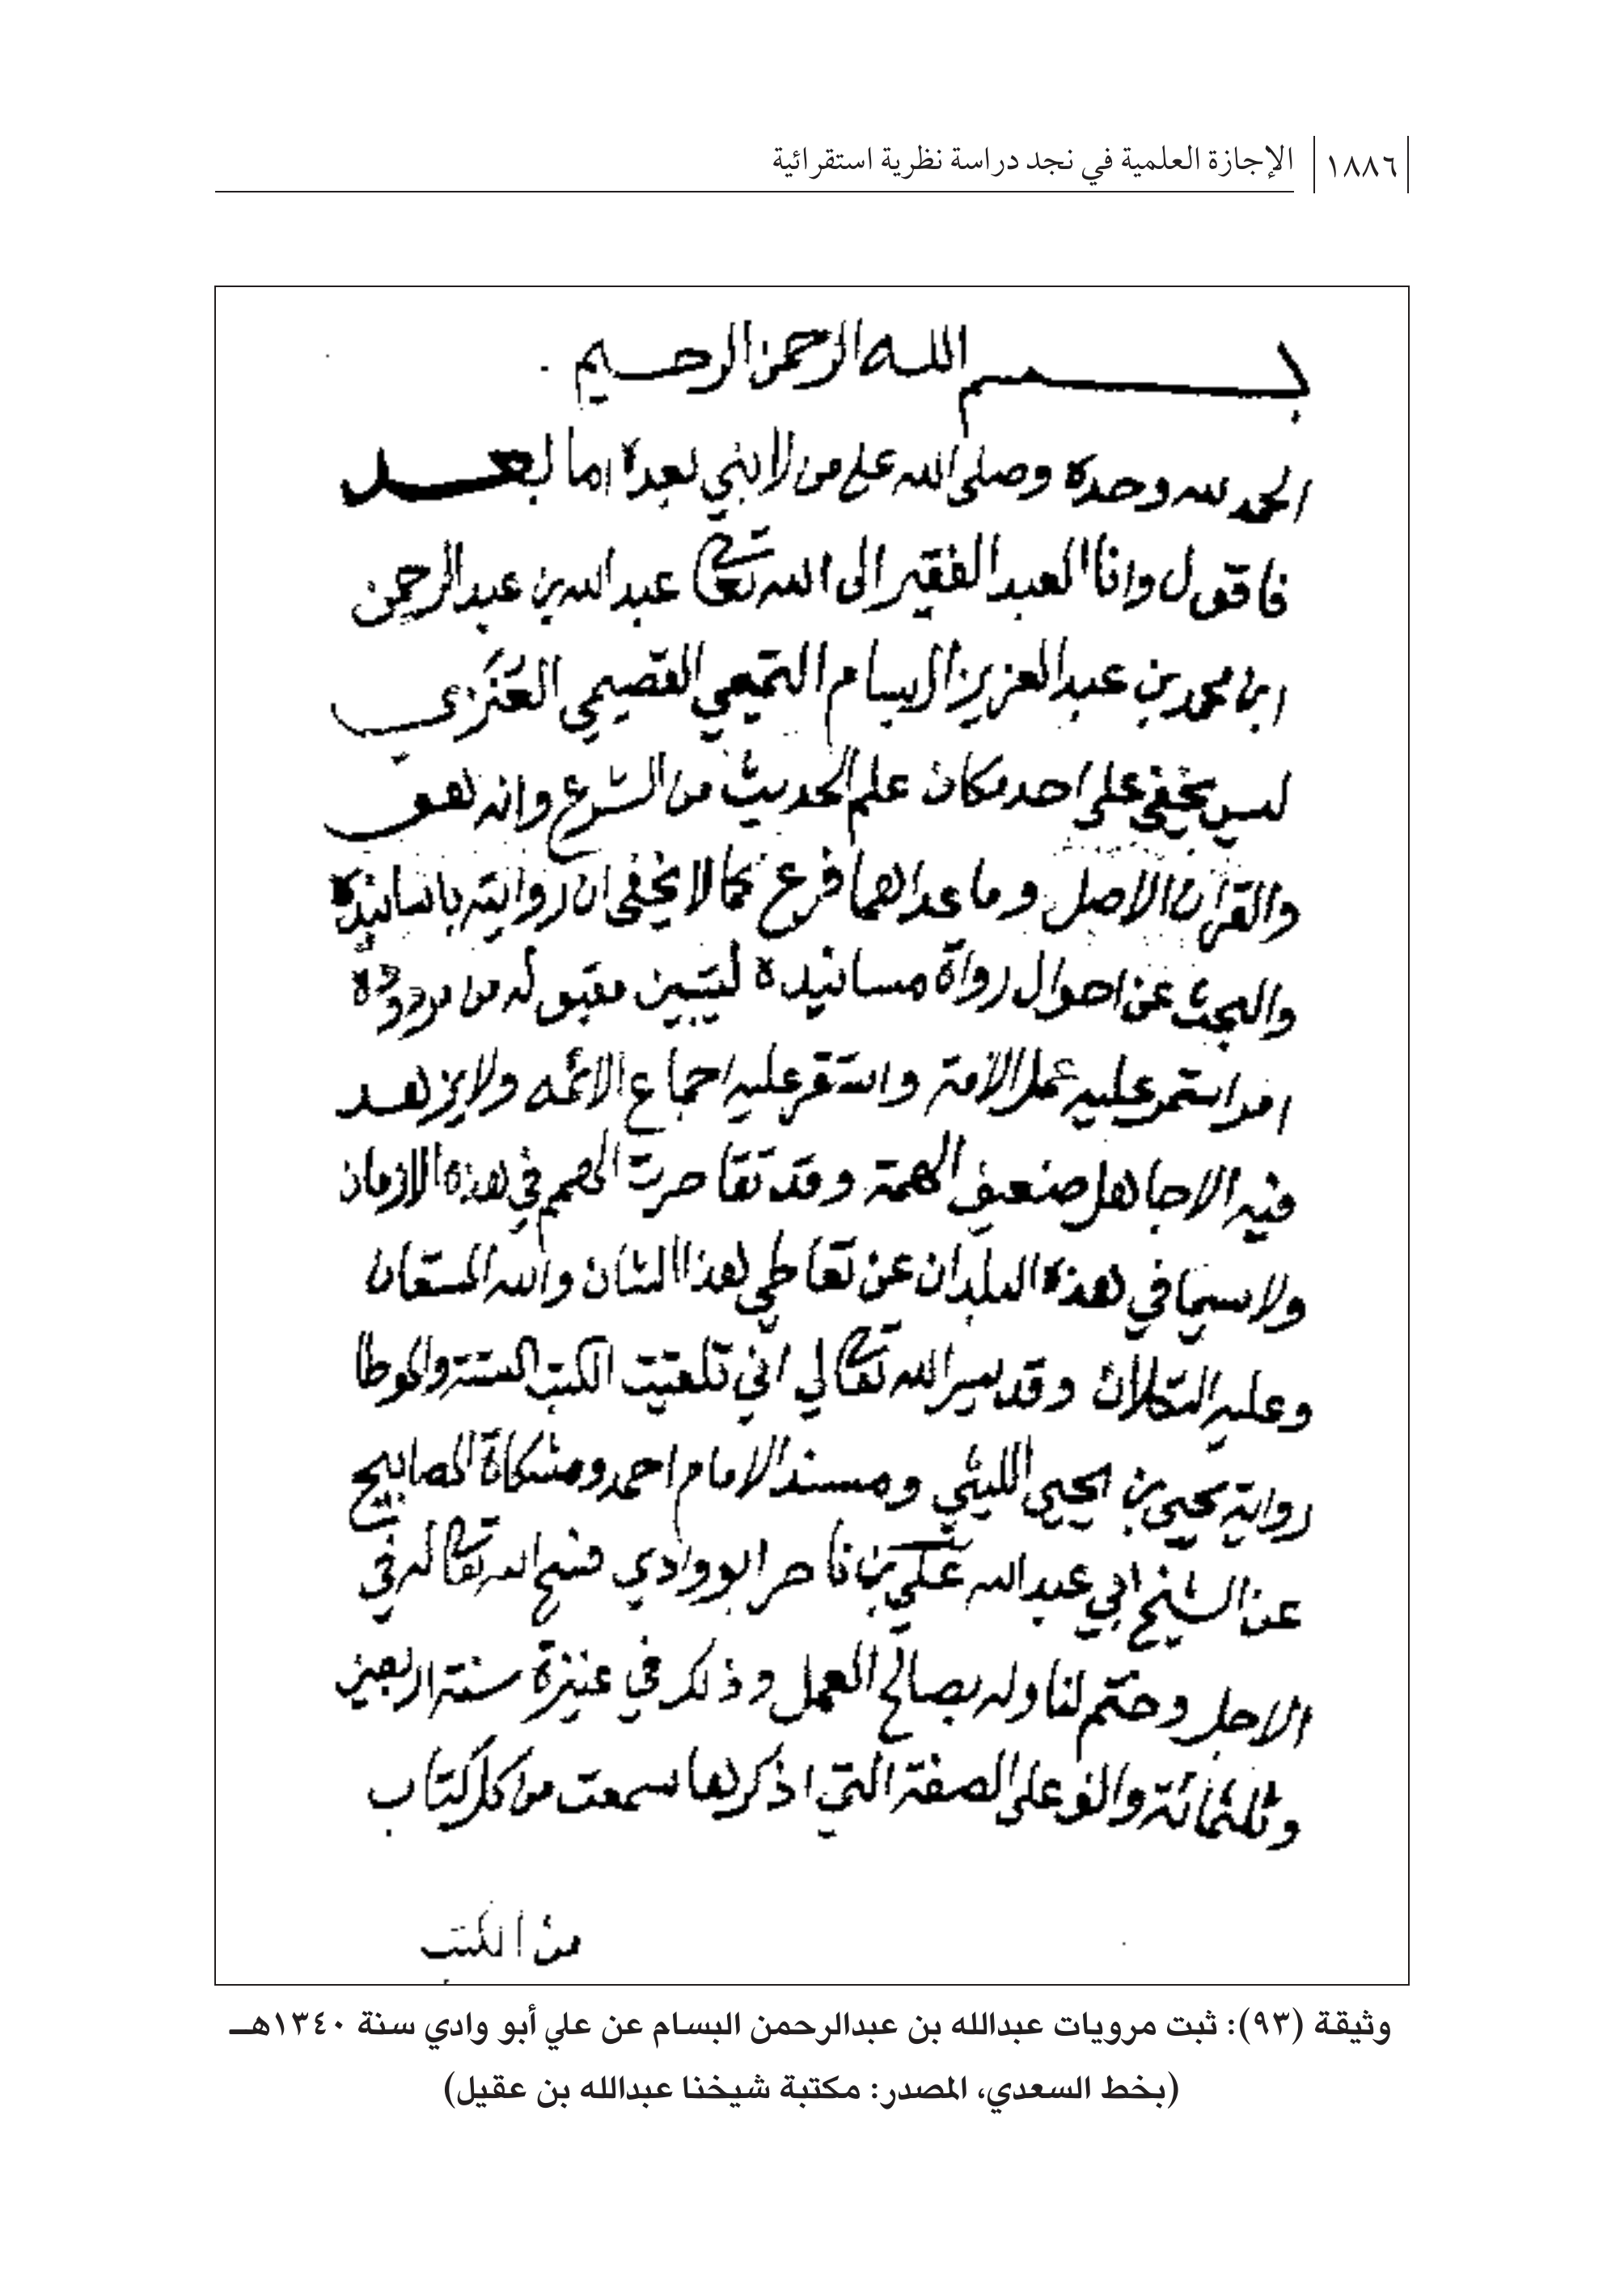 ١٨٨٦ الإجازة العلمية في نجد دراسة نظرية استقرائية
بسم الله الرحمن الرحيم
الحمد لله وحده وصلى الله على من لا نبي بعده اما بعد
فاقول وانا العبد الفقير الى الله تعالى عبد الله بن عبد الرحمن
ابن محمد بن عبد العزيز ال بسام التميمي القصيمي العنزي
ليس يخفى على احد مكان علم الحديث من الشرع وانه هو
والقرآن الاصل وما عداهما فرع كما لا يخفى ان روايته باسانيده
والبحث عن احوال رواة مسانيده ليتبين مقبوله من مردوده
امر استمر عليه عمل الامة واستقر عليه اجماع الائمه ولا يزهد
فيه الا جاهل ضعيف الهمة وقد تقاصرت الهمم في هذه الازمان
ولا سيما في هذه البلدان عن تعاطي هذا الشان والله المستعان
وعليه التكلان وقد يسر الله تعالى لي اني تلقيت الكتب الستة والموطا
رواية يحيى بن يحيى الليثي ومسند الامام احمد ومشكاة المصابيح
عن الشيخ ابي عبد الله علي بن ناصر ابو وادي فسح الله تعالى له في
الاجل وختم لنا وله بصالح العمل وذلك في عنيزة سنة اربعين
وثلثمائة والف على الصفة التي اذكرها سمعت من كل كتاب
من الكتب
وثيقة (٩٣): ثبت مرويات عبدالله بن عبدالرحمن البسام عن علي أبو وادي سنة ١٣٤٠هـ
(بخط السعدي، المصدر: مكتبة شيخنا عبدالله بن عقيل)